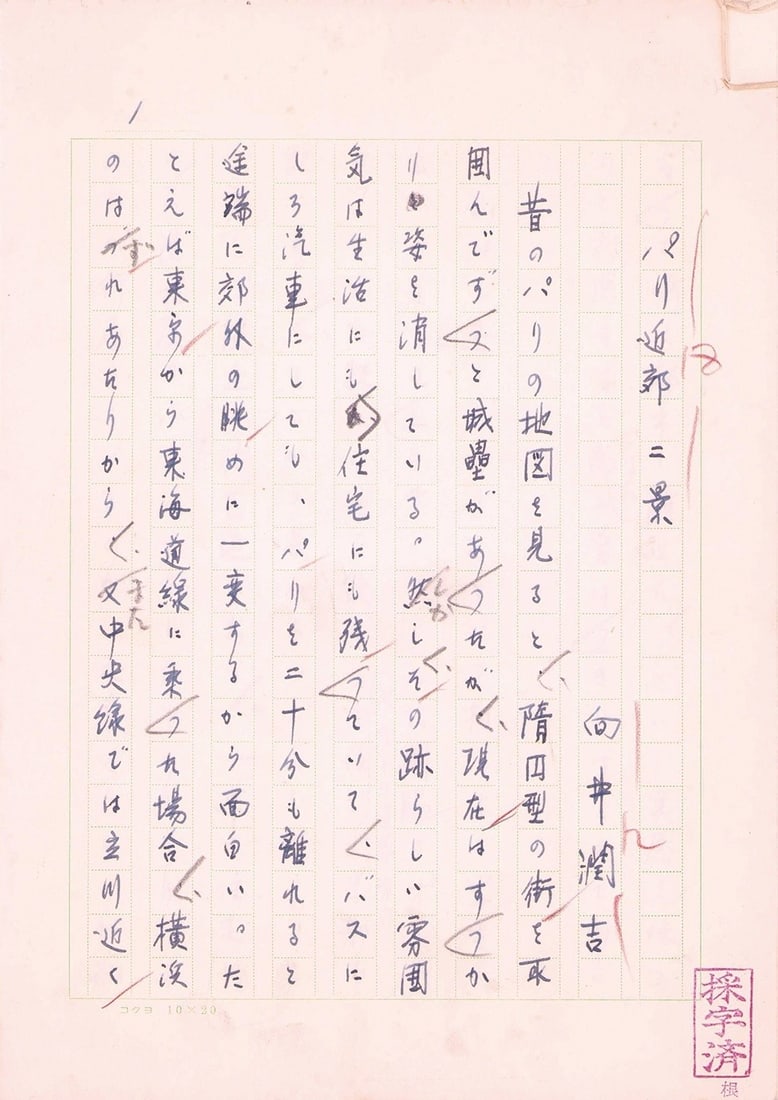 1
パリ近郊二景
18
向井潤吉
昔のパリの地図を見ると、隋円型の街を取
囲んでずつと城壘があつたが、現在はすつか
り姿を消している。然しその跡らしい雰囲
気は生活にも住宅にも残つていて、バスに
しろ汽車にしても、パリを二十分も離れると
途端に郊外の眺めに一変するから面白い。た
とえば東京から東海道線に乗つた場合、横浜
のはずれあたりから、又中央線では立川近く
しか
また
コクヨ 10×20
採字済
根